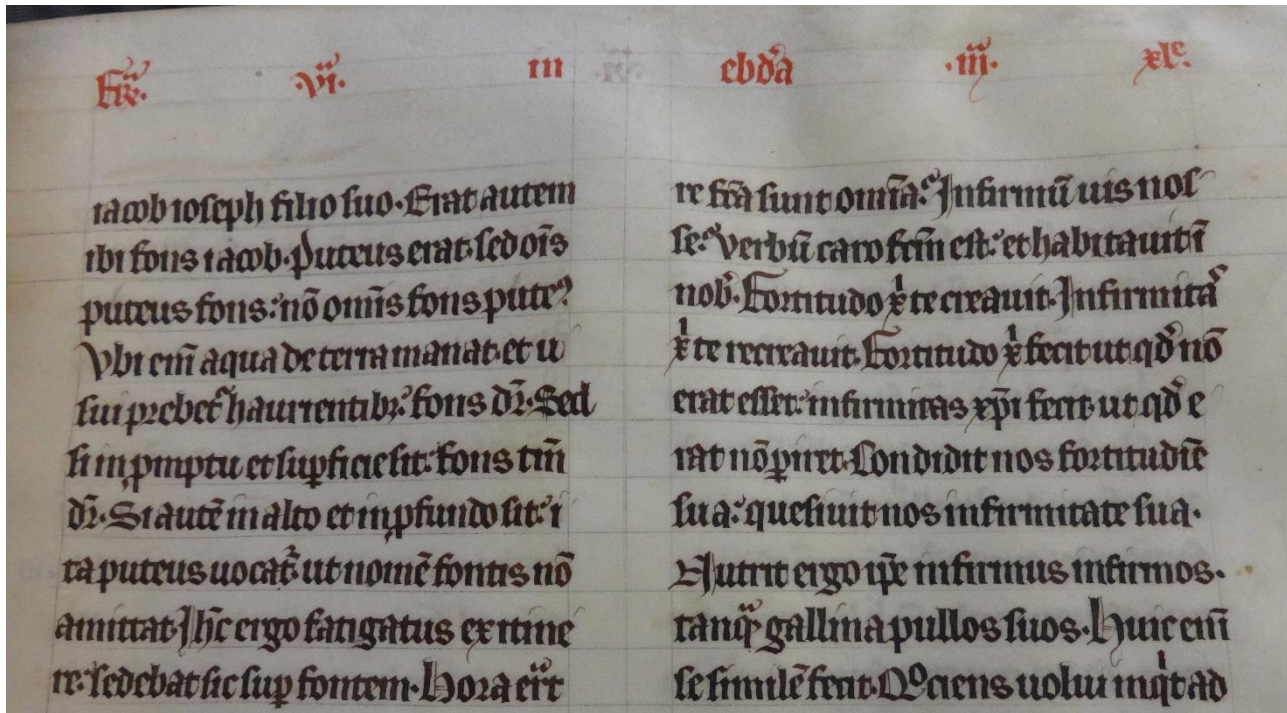 fr̄e. .vi. in ebd̄a .iii. xl̄e.
iacob ioseph filio suo. Erat autem
ibi fons iacob. Puteus erat. sed oīs
puteus fons: nō omīs fons pute᷒
Vbi em̄ aqua de terra manat. et u
sui prebet᷑ haurientib᷒: fons dr̄. Sed
si in ꝓmptu et suꝑficie sit: fons tm̄
dr̄. Si autē in alto et in ꝓfundo sit: i
ta puteus uocat᷑: ut nomē fontis nō
amittat. Ih̄c ergo fatigatus ex itine
re: sedebat sic suꝑ fontem. Hora er̄t
re fc̄a sunt omīa. Infirmū uis nos
se: Verbū caro fcm̄ est: et habitauit ī
nob̄. Fortitudo xͥ te creauit. Infirmita᷒
xͥ te recreauit. Fortitudo xͥ fecit ut qd̓ nō
erat esset: infirmitas xp̄i fecit ut qd̓ e
rat nō ꝑiret. Condidit nos fortitudiē
sua: quesiuit nos infirmitate sua.
Nutrit ergo ip̄e infirmus infirmos.
tanqᷓ gallina pullos suos. Huic em̄
se similē fecit. Qͦciens uolui inqͥt ad